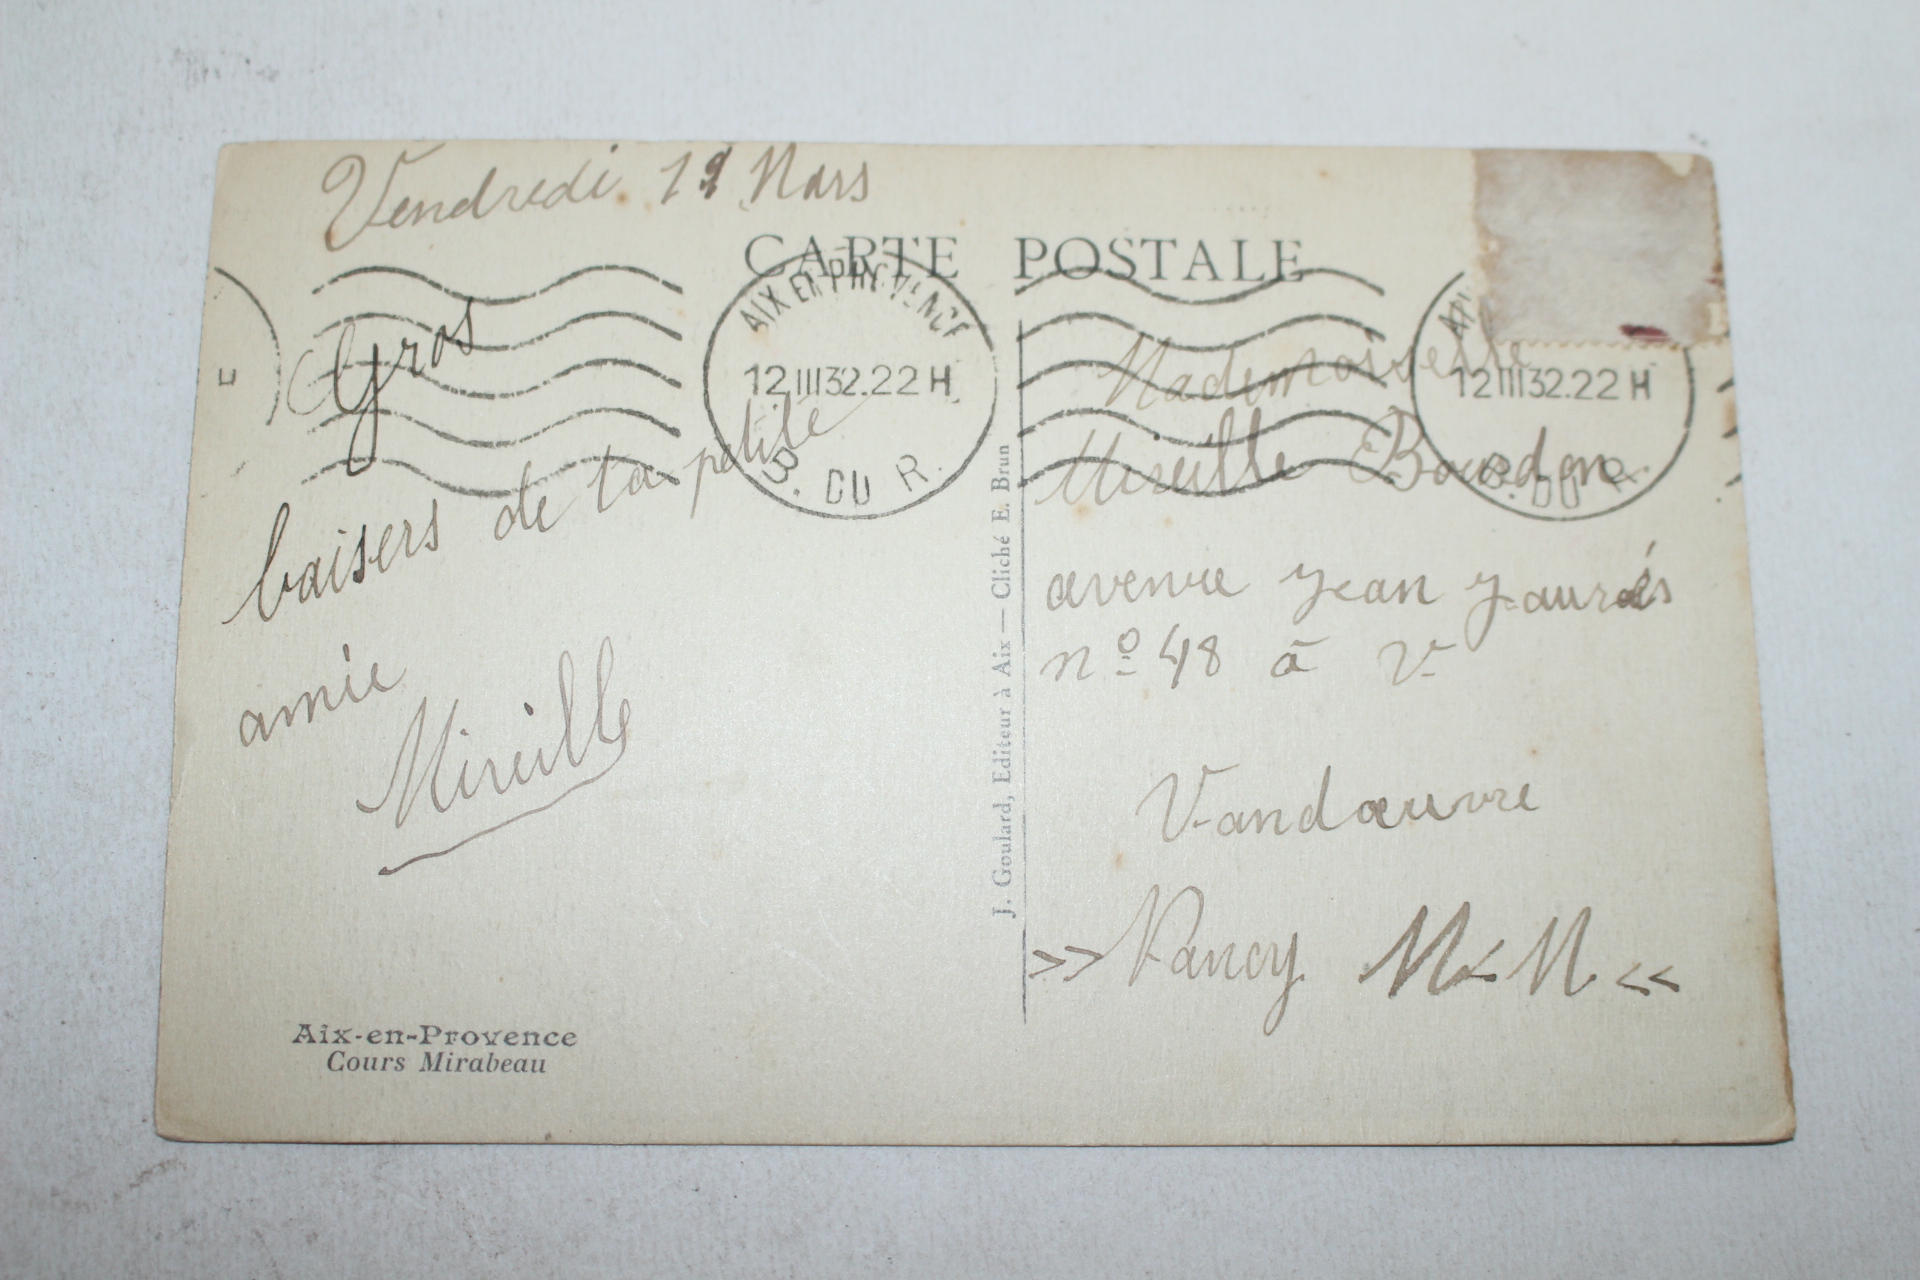 Vendredi 11 Mars
CARTE POSTALE
AIX EN PROVENCE
12 III 32. 22 H
B. DU R.
Gros
baisers de ta petite
amie
Mireille
Aix-en-Provence
Cours Mirabeau
J. Goulard, Editeur à Aix — Cliché E. Brun
12 III 32. 22 H
B. DU R.
Mademoiselle
Mireille Bourdon
avenue Jean Jaurés
nº 48 à V-
Vandœuvre
>> Nancy M-M. <<